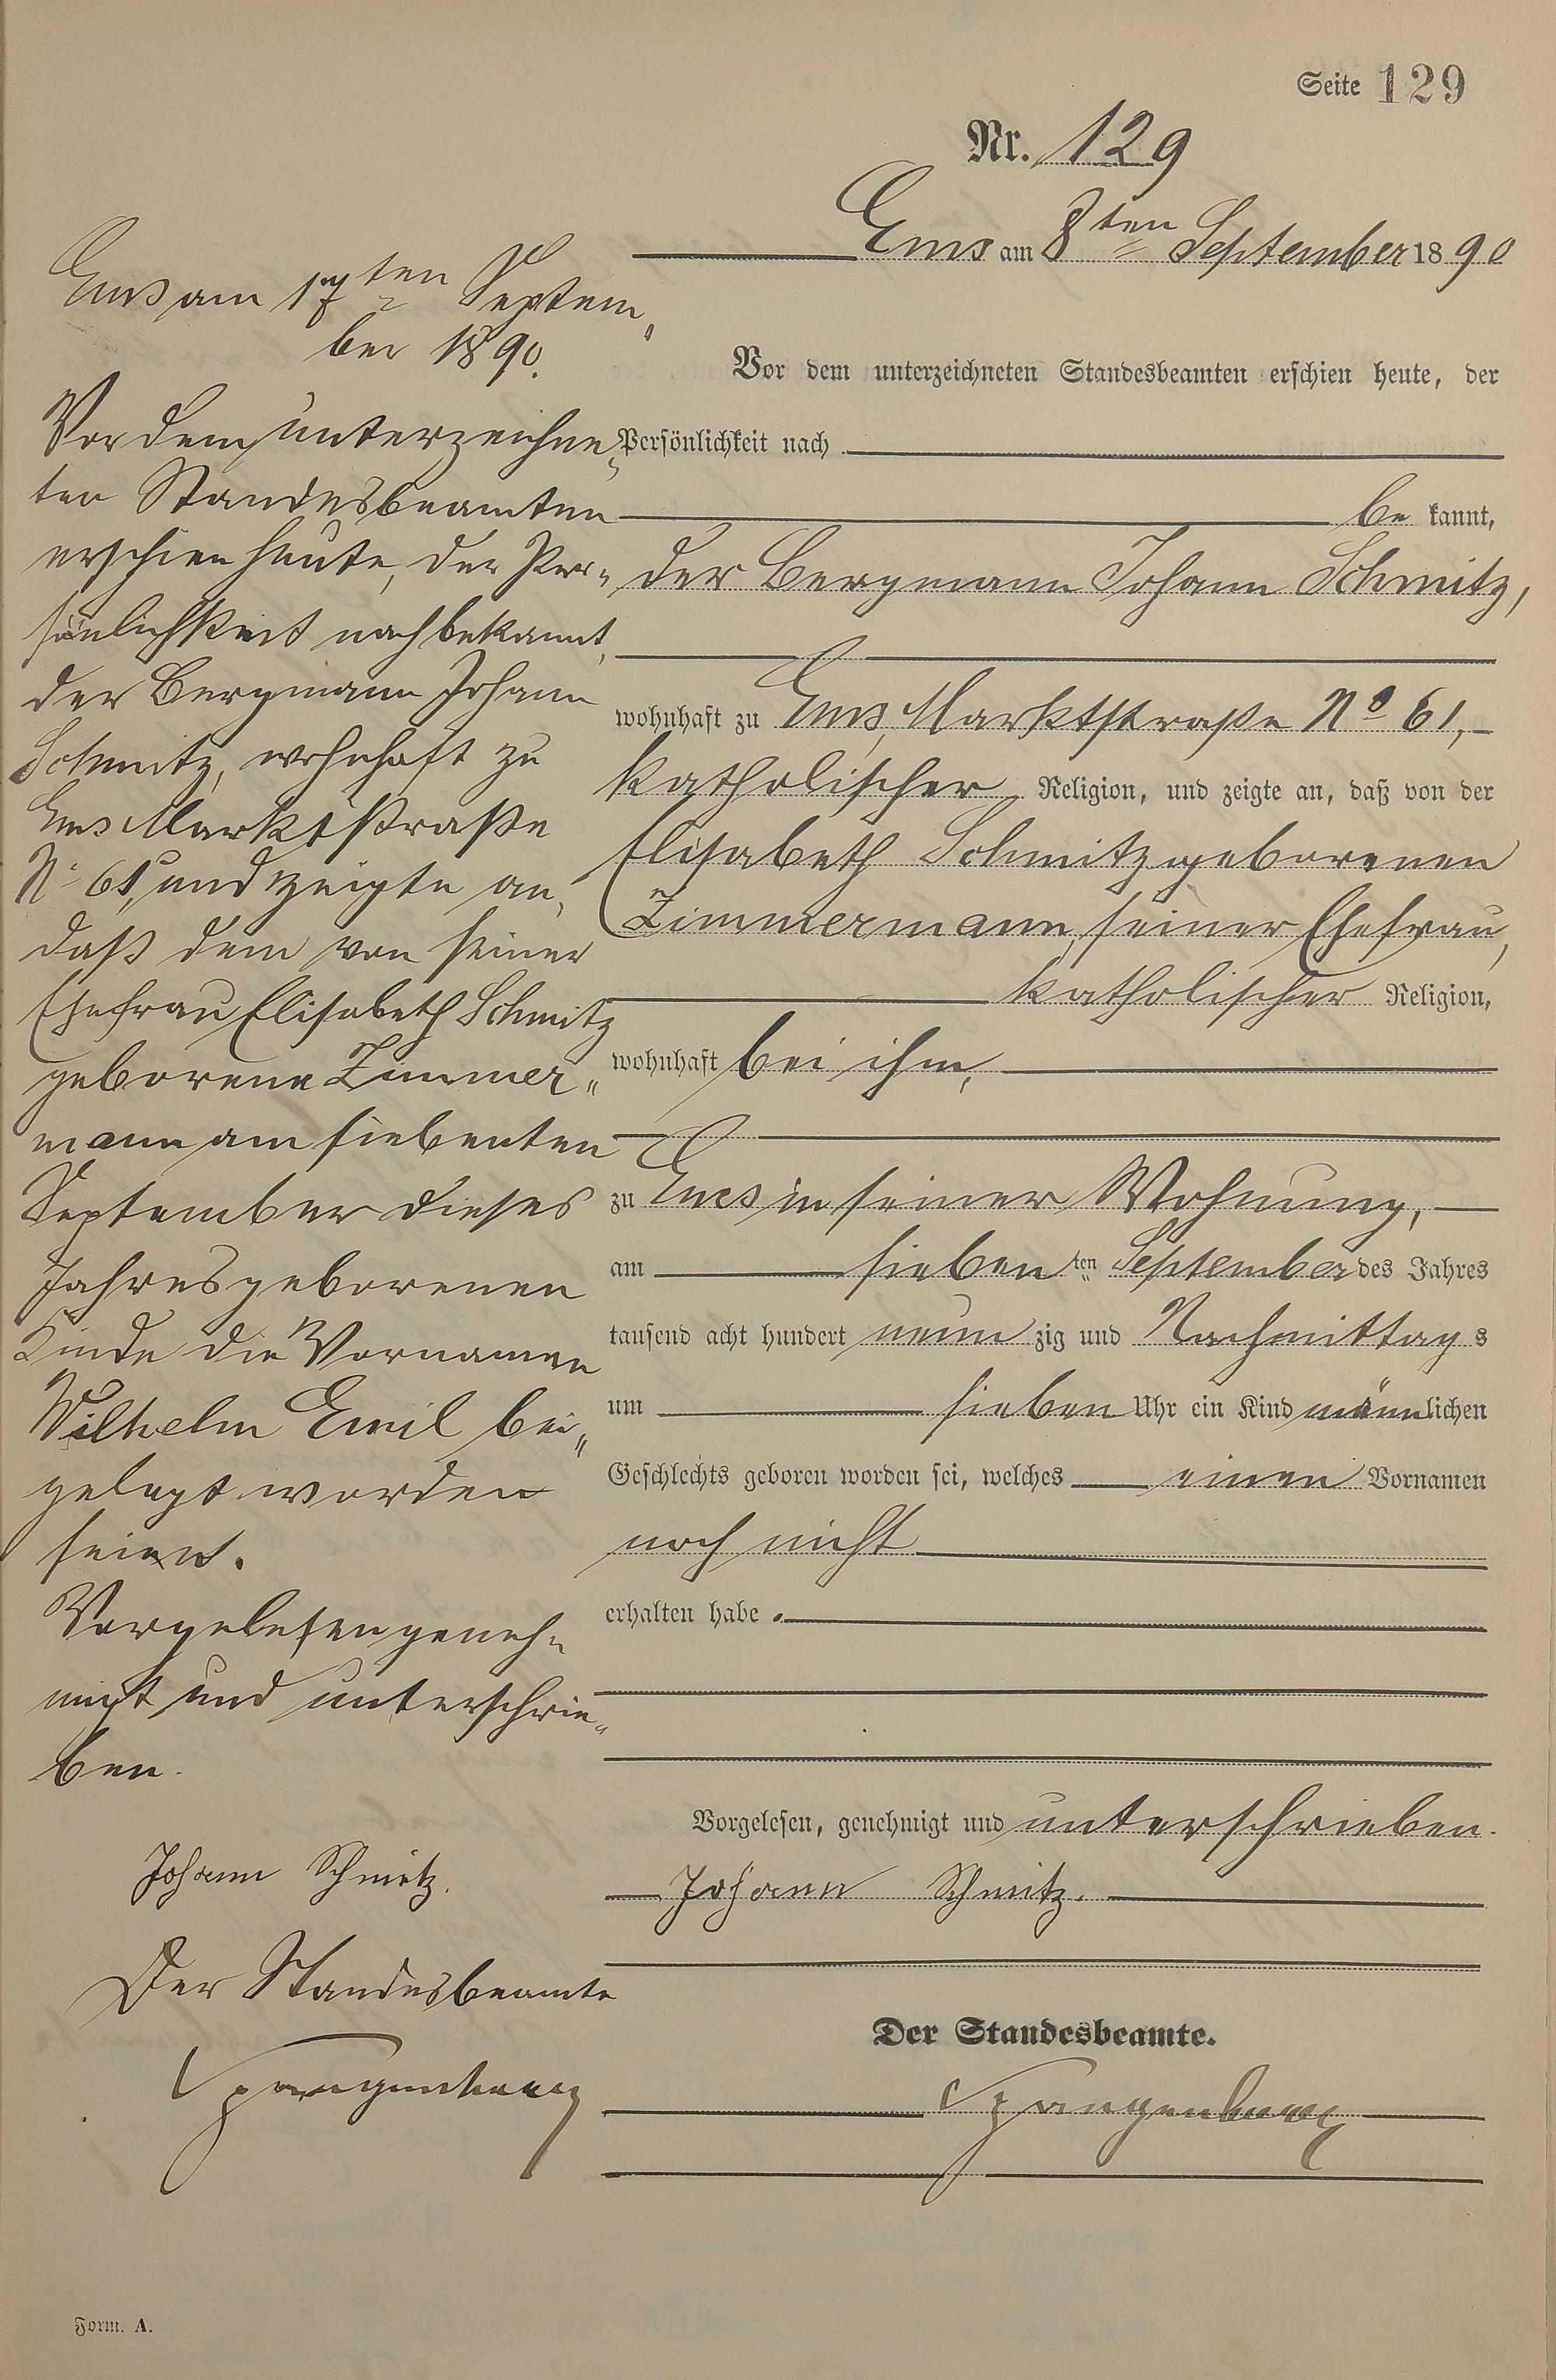 Seite 129
Nr. 129
Ems am 8ten September 1890
Vor dem unterzeichneten Standesbeamten erschien heute, der
Persönlichkeit nach
be kannt,
der Bergmann Johann Schmitz,
wohnhaft zu Ems, Marktstraße No 61,
katholischer Religion, und zeigte an, daß von der
Elisabeth Schmitz geborenen
Zimmermann, seiner Ehefrau,
katholischer Religion,
wohnhaft bei ihm,
zu Ems in seiner Wohnung,
am siebenten September des Jahres
tausend acht hundert neunzig und Nachmittags
um sieben Uhr ein Kind männlichen
Geschlechts geboren worden sei, welches einen Vornamen
noch nicht
erhalten habe.
Vorgelesen, genehmigt und unterschrieben.
Johann Schmitz.
Der Standesbeamte.
Spangenberg
Ems am 17ten Septem„
ber 1890.
Vor dem unterzeichne„
ten Standesbeamten
erschien heute, der Per„
sönlichkeit nach bekannt,
der Bergmann Johann
Schmitz, wohnhaft zu
Ems Marktstraße
No 61, und zeigte an,
daß dem von seiner
Ehefrau Elisabeth Schmitz
geborene Zimmer„
mann am siebenten
September dieses
Jahres geborenen
Kinde die Vornamen
Wilhelm Emil bei„
gelegt worden
seien.
Vorgelesen geneh„
migt und unterschrie„
ben.
Johann Schmitz.
Der Standesbeamte
Spangenberg
Form. A.